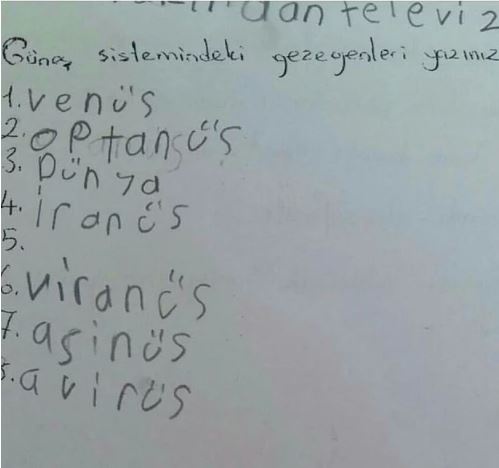 dan televiz
Güneş sistemindeki gezegenleri yazınız
1. venüs
2. optanüs
3. Dünya
4. iranüs
5.
6. viranüs
7. asinüs
8. avirüs